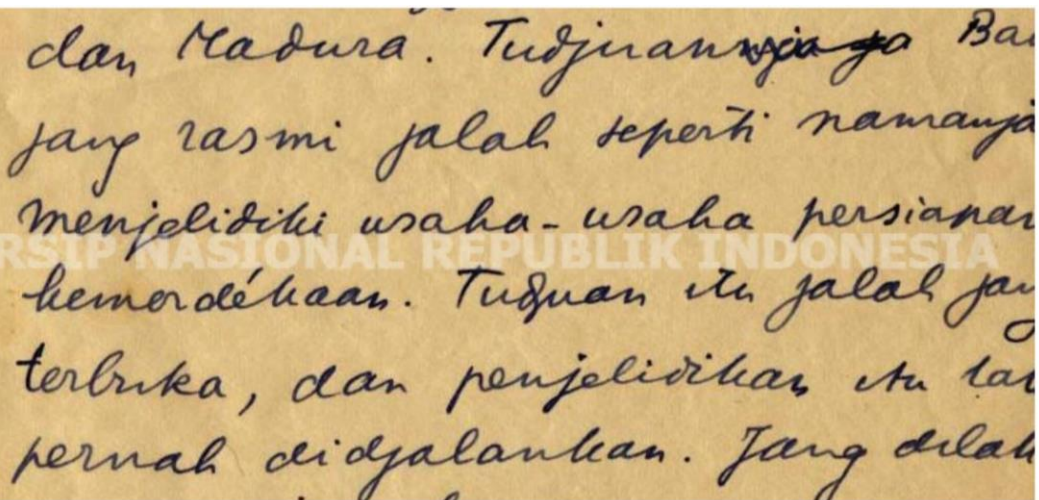 dan Madura. Tudjuan Ba
jang rasmi jalah seperti namanja
menjelidiki usaha-usaha persiapan
RSIP NASIONAL REPUBLIK INDONESIA
kemerdékaan. Tudjuan itu jalah jan
terbuka, dan penjelidikan itu
pernah didjalankan. Jang dilak